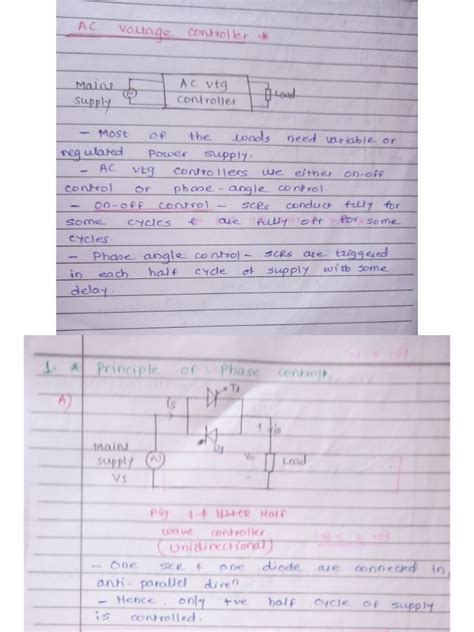 AC Voltage controller *
Mains
supply
AC vtg
controller
Load
- Most of the loads need variable or
regulated power supply.
- AC vtg controllers use either on-off
control or phase-angle control.
- on-off control - SCRs conduct fully for
some cycles & are fully off for some
cycles
- Phase angle control - SCRs are triggered
in each half cycle of supply with some
delay.
1. * Principle of Phase control
A)
T1
is
D1
Mains
supply
Vs
in
Vo
Load
Fig. 1.1 Half
wave controller
(Unidirectional)
- One SCR & one diode are connected in
anti-parallel diren
- Hence, only +ve half cycle of supply
is controlled.